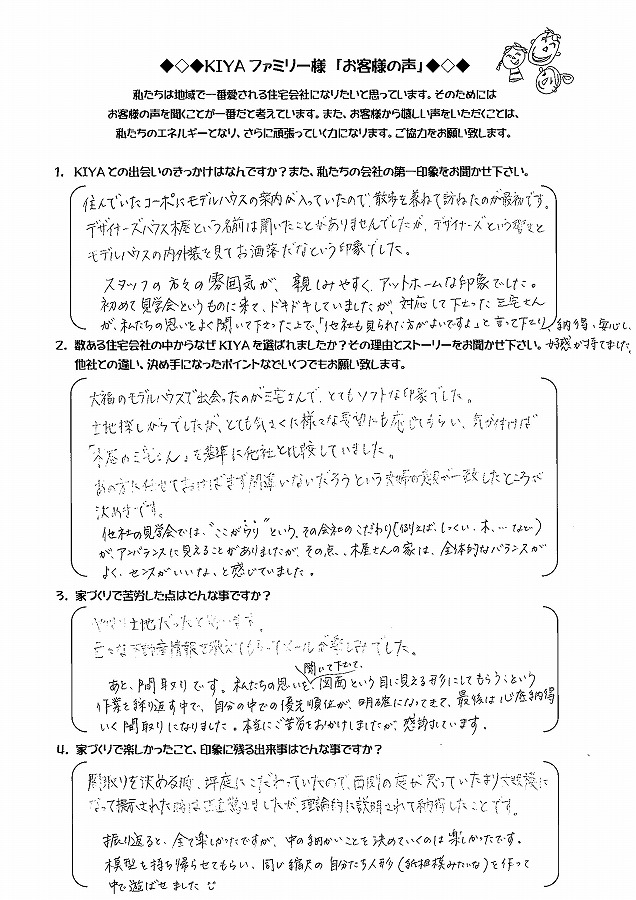 ◆◇◆KIYAファミリー様「お客様の声」◆◇◆
私たちは地域で一番愛される住宅会社になりたいと思っています。そのためには
お客様の声を聞くことが一番だと考えています。また、お客様から嬉しい声をいただくことは、
私たちのエネルギーとなり、さらに頑張っていく力になります。ご協力をお願い致します。
1. KIYAとの出会いのきっかけはなんですか?また、私たちの会社の第一印象をお聞かせ下さい。
住んでいたコーポにモデルハウスの案内が入っていたので、散歩を兼ねて訪ねたのが最初です。
デザイナーズハウス木屋という名前は聞いたことがありませんでしたが、デザイナーズという響きと
モデルハウスの内外装を見てお洒落だなという印象でした。
スタッフの方々の雰囲気が、親しみやすく、アットホームな印象でした。
初めて見学会というものに来て、ドキドキしていましたが、対応して下さった三宅さん
が、私たちの思いをよく聞いて下さった上で、「他社も見られた方がよいですよ」と言って下さり、納得、安心し、
好感が持てました。
2. 数ある住宅会社の中からなぜKIYAを選ばれましたか?その理由とストーリーをお聞かせ下さい。
他社との違い、決め手になったポイントなどいくつでもお願い致します。
大福のモデルハウスで出会ったのが三宅さんで、とてもソフトな印象でした。
土地探しからでしたが、とても気さくに様々な要望にも応じてもらい、気が付けば
「木屋の三宅さん」を基準に他社と比較していました。
あの方に任せておけばまず間違いないだろうという夫婦の意見が一致したところで
決めきです。
他社の見学会では、"ここがウリ"という、その会社のこだわり(例えば、しっくい、木、…など)
が、アンバランスに見えることがありましたが、その点、木屋さんの家は、全体的なバランスが
よく、センスがいいな、と感じていました。
3. 家づくりで苦労した点はどんな事ですか?
やはり土地だったと思います。
色々な不動産情報を教えてもらってメールが楽しみでした。
あと、間取りです。私たちの思いを、聞いて下さって、図面という目に見える形にしてもらうという
作業を繰り返す中で、自分の中での優先順位が、明確になってきて、最後は心底納得
いく間取りになりました。本当にご苦労をおかけしましたが、感謝しています。
4. 家づくりで楽しかったこと、印象に残る出来事はどんな事ですか?
間取りを決める時、坪庭にこだわっていたので、西側の庭が思っていたより大規模に
なって提示された時は正直驚きましたが、理論的に説明されて納得したことです。
振り返ると、全て楽しかったですが、中の細かいことを決めていくのは楽しかったです。
模型を持ち帰らせてもらい、同じ縮尺の自分たち人形(紙相撲みたいな)を作って
中で遊ばせました